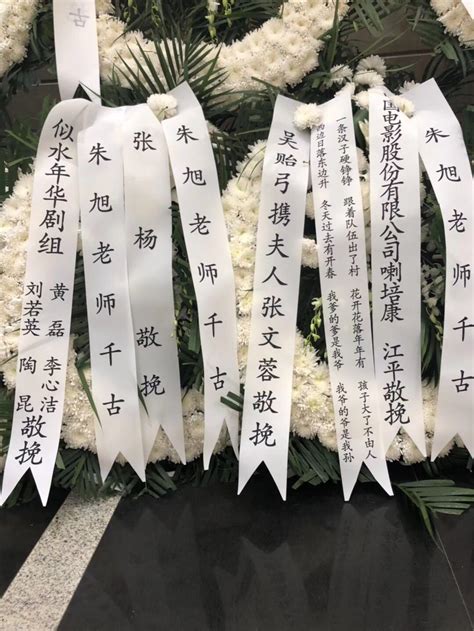 古
似水年华剧组
黄磊 李心洁
刘若英 陶昆
敬挽
朱旭老师千古
张杨 敬挽
朱旭老师千古
吴贻弓携夫人张文蓉敬挽
一条汉子硬铮铮 跟着队伍出了村 花开花落年年有 孩子大了不由人
西边日落东边升 冬天过去有开春 我爹的爹是我爷 我爷的爷是我孙
国电影股份有限公司喇培康 江平敬挽
朱旭老师千古